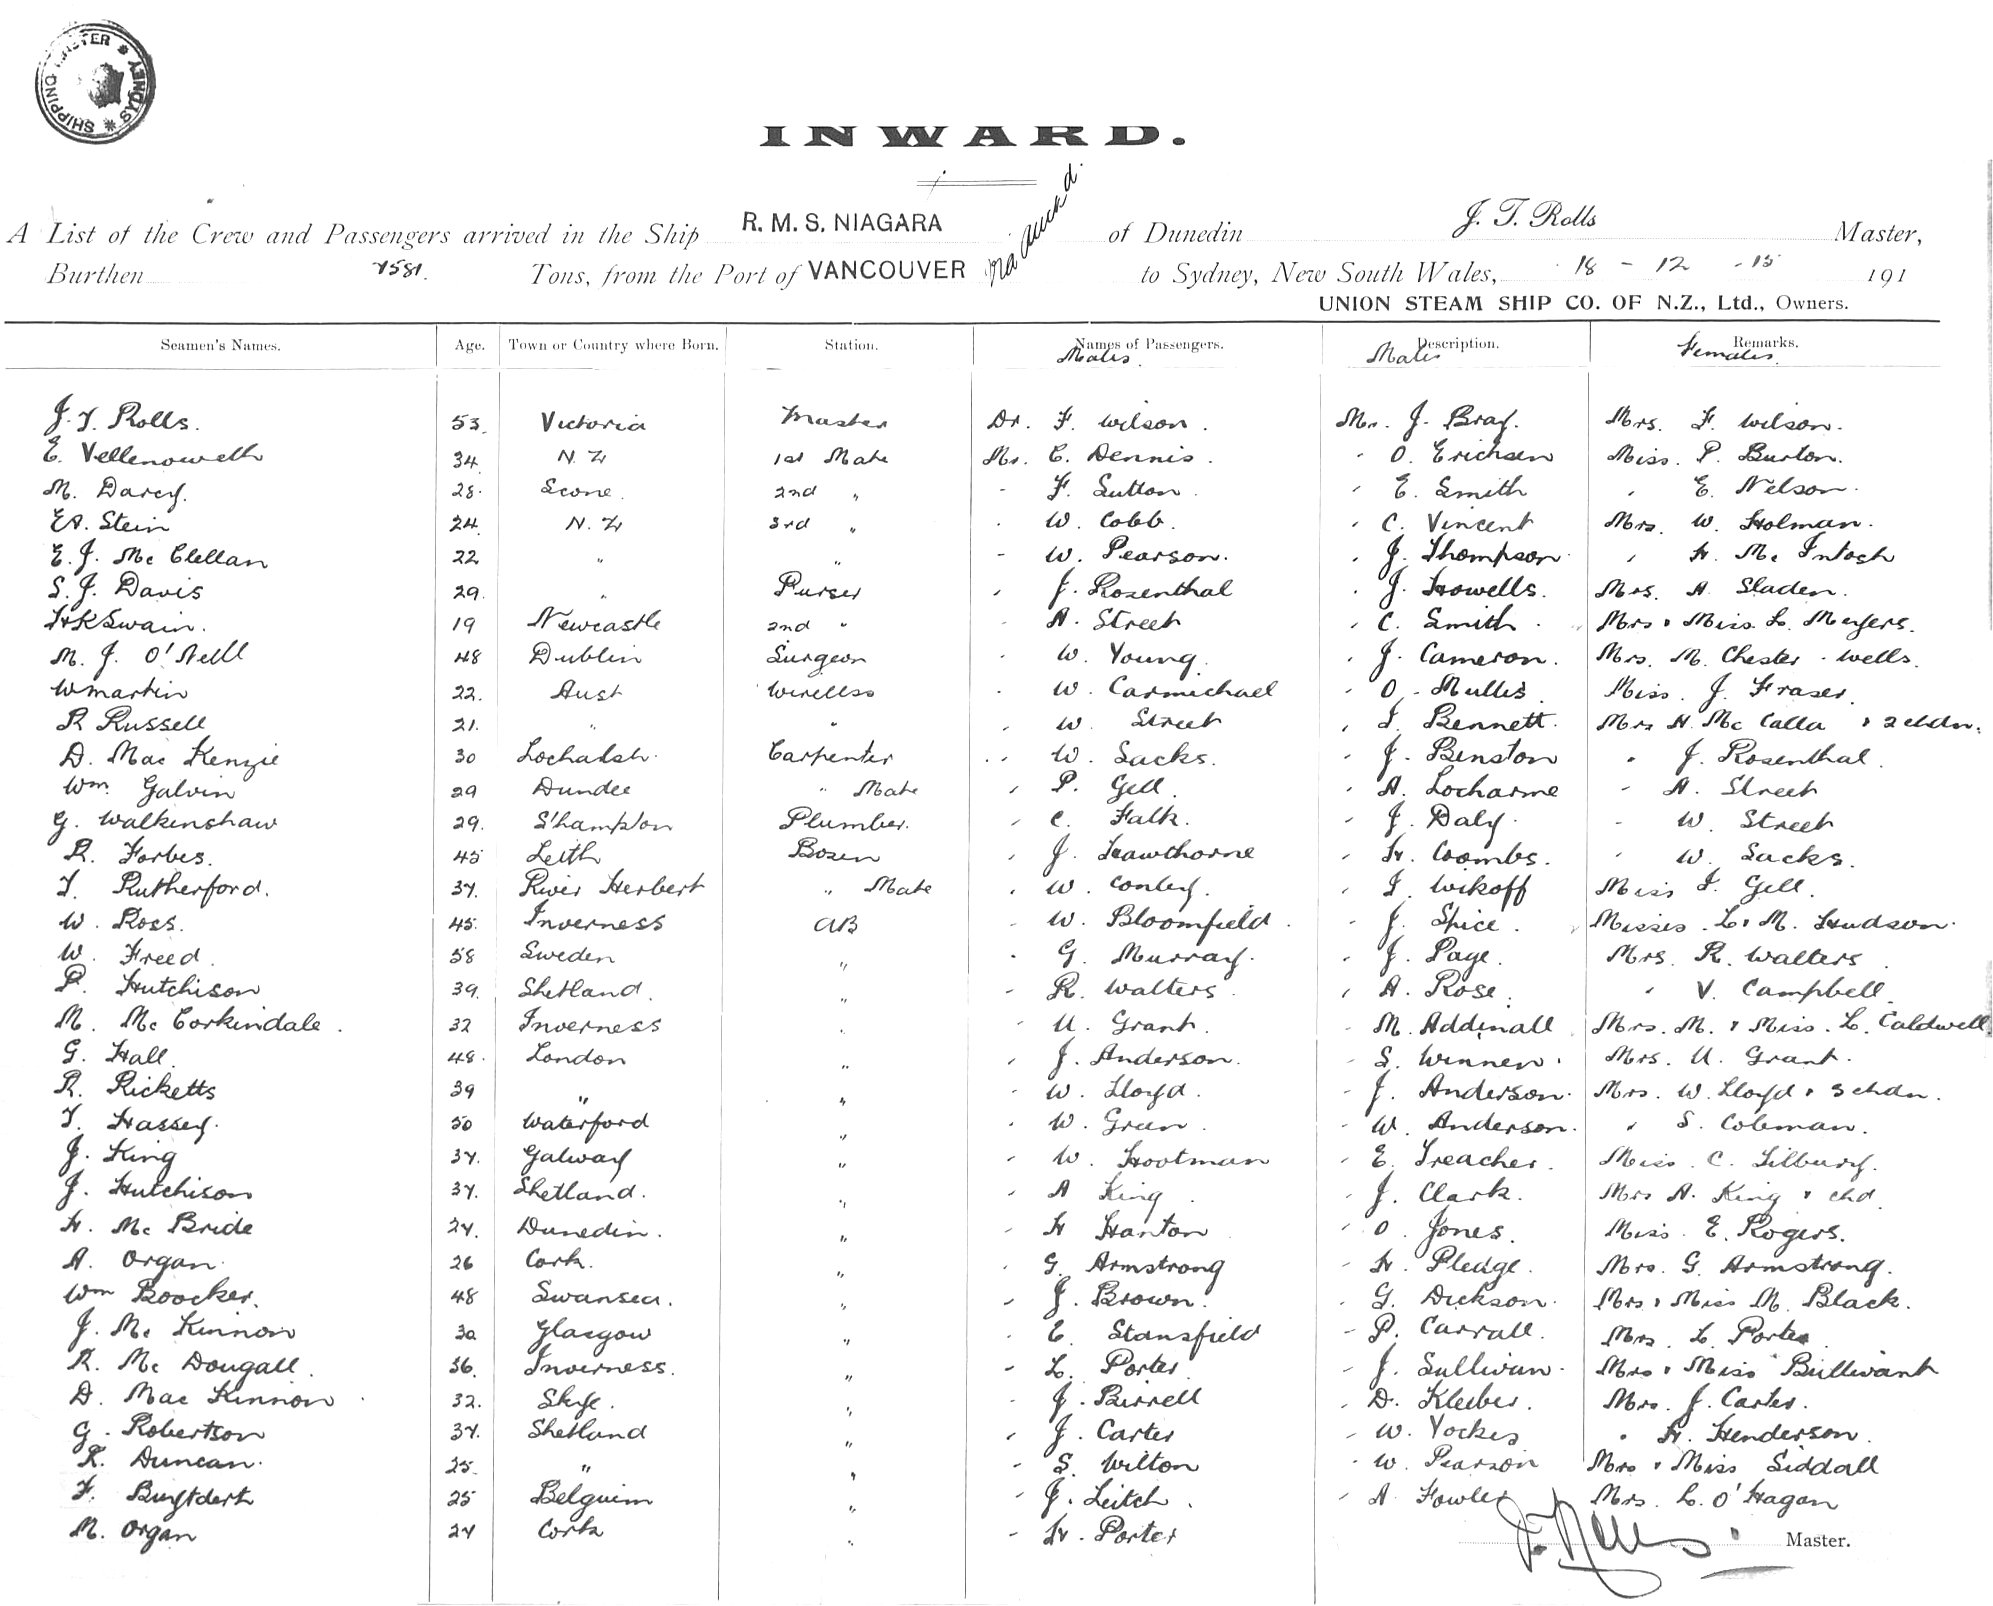 SHIPPING MASTER * SYDNEY *
INWARD.
A List of the Crew and Passengers arrived in the Ship R. M. S. NIAGARA via Auckd. of Dunedin J. T. Rolls Master,
Burthen 7581. Tons, from the Port of VANCOUVER to Sydney, New South Wales, 18 - 12 - 15 191
UNION STEAM SHIP CO. OF N.Z., Ltd., Owners.
Seamen's Names. Age. Town or Country where Born. Station. Names of Passengers. Description. Remarks.
Males. Males Females.
J. T. Rolls. 53. Victoria Master Dr. F. Wilson. Mr. J. Bray. Mrs. F. Wilson.
E. Vellenoweth 34 N. Z. 1st Mate Mr. C. Dennis. " O. Erichsen Miss. P. Burton.
M. Darcy. 28. Scone. 2nd " - F. Sutton " E. Smith " E. Nelson.
EA. Stein 24. N. Z. 3rd " " W. Cobb. " C. Vincent Mrs. W. Holman.
E. J. Mc Clellan 22 " " - W. Pearson. " J. Thompson. " H. Mc Intosh
S. J. Davis 29. " Purser " J. Rosenthal " J. Howells. Mrs. A. Sladen.
HKSwain. 19 Newcastle 2nd " - A. Street " C. Smith. Mrs & Miss L. Meyers.
M. J. O'Neill 48 Dublin Surgeon - W. Young. " J. Cameron. Mrs. M. Chester - Wells.
WMartin 22. Aust Wireless - W. Carmichael - O. Mullis. Miss. J. Fraser.
R Russell 21. " " " W. Street " T. Bennett. Mrs H. Mc Calla & 2 chdn.
D. Mac Kenzie 30 Lochalsh. Carpenter " W. Sacks. " J. Benston " J. Rosenthal.
Wm. Galvin 29 Dundee " Mate " P. Gell. " A. Locharme - A. Street
G. Walkinshaw 29. S'hampton Plumber. " C. Falk. " J. Daly. - W. Street
R. Forbes. 45 Leith Bosen " J. Hawthorne " H. Coombs. " W. Sacks.
T. Rutherford. 37. River Herbert " Mate " W. Conley. " T. Wikoff Miss T. Gell.
W. Ross. 45. Inverness AB - W. Bloomfield. - J. Spice. Misses. L & M. Hudson.
W. Freed. 58 Sweden " " G. Murray. - J. Page. Mrs. R. Walters
P. Hutchison 39. Shetland. " - R. Walters. " A. Rose. " V. Campbell.
M. Mc Corkindale. 32 Inverness " - U. Grant. - M. Addinall Mrs. M. & Miss. L. Caldwell
G. Hall. 48. London " - J. Anderson. - S. Winnen. Mrs. U. Grant.
R. Ricketts 39 " " - W. Lloyd. - J. Anderson. Mrs. W. Lloyd & 3 chdn.
T. Hassey. 50 Waterford " - W. Green. - W. Anderson. " S. Coleman.
J. King 37. Galway " " W. Hootman - E. Treacher. Miss. C. Tilbury.
J. Hutchison 37. Shetland. " - A King. - J. Clark. Mrs A. King & chd.
H. Mc Bride 27. Dunedin. " - H Hanton - O. Jones. Miss. E. Rogers.
A. Organ. 26 Cork. " " G. Armstrong - H. Pledge. Mrs. G. Armstrong.
Wm Boocker. 48 Swansea. " - J. Brown. - G. Dickson. Mrs & Miss M. Black.
J. Mc Kinnon 30 Glasgow " " E. Stansfield - P. Carrall. Mrs. L. Porter
R. Mc Dougall. 36. Inverness. " - L. Porter - J. Sullivan. Mrs & Miss Bullivant
D. Mac Kinnon. 32. Skye. " - J. Birrell - D. Kleiber. Mrs. J. Carter.
G. Robertson 37. Shetland " " J. Carter - W. Yockes " H. Henderson.
R. Duncan. 25. " " - S. Wilton - W. Pearson Mrs & Miss Siddall
F. 25 Belguim " - J. Leitch. - A. Fowler Mrs. L. O'Hagan
M. Organ 27 Cork " - H. Porter
J. T. Rolls Master.